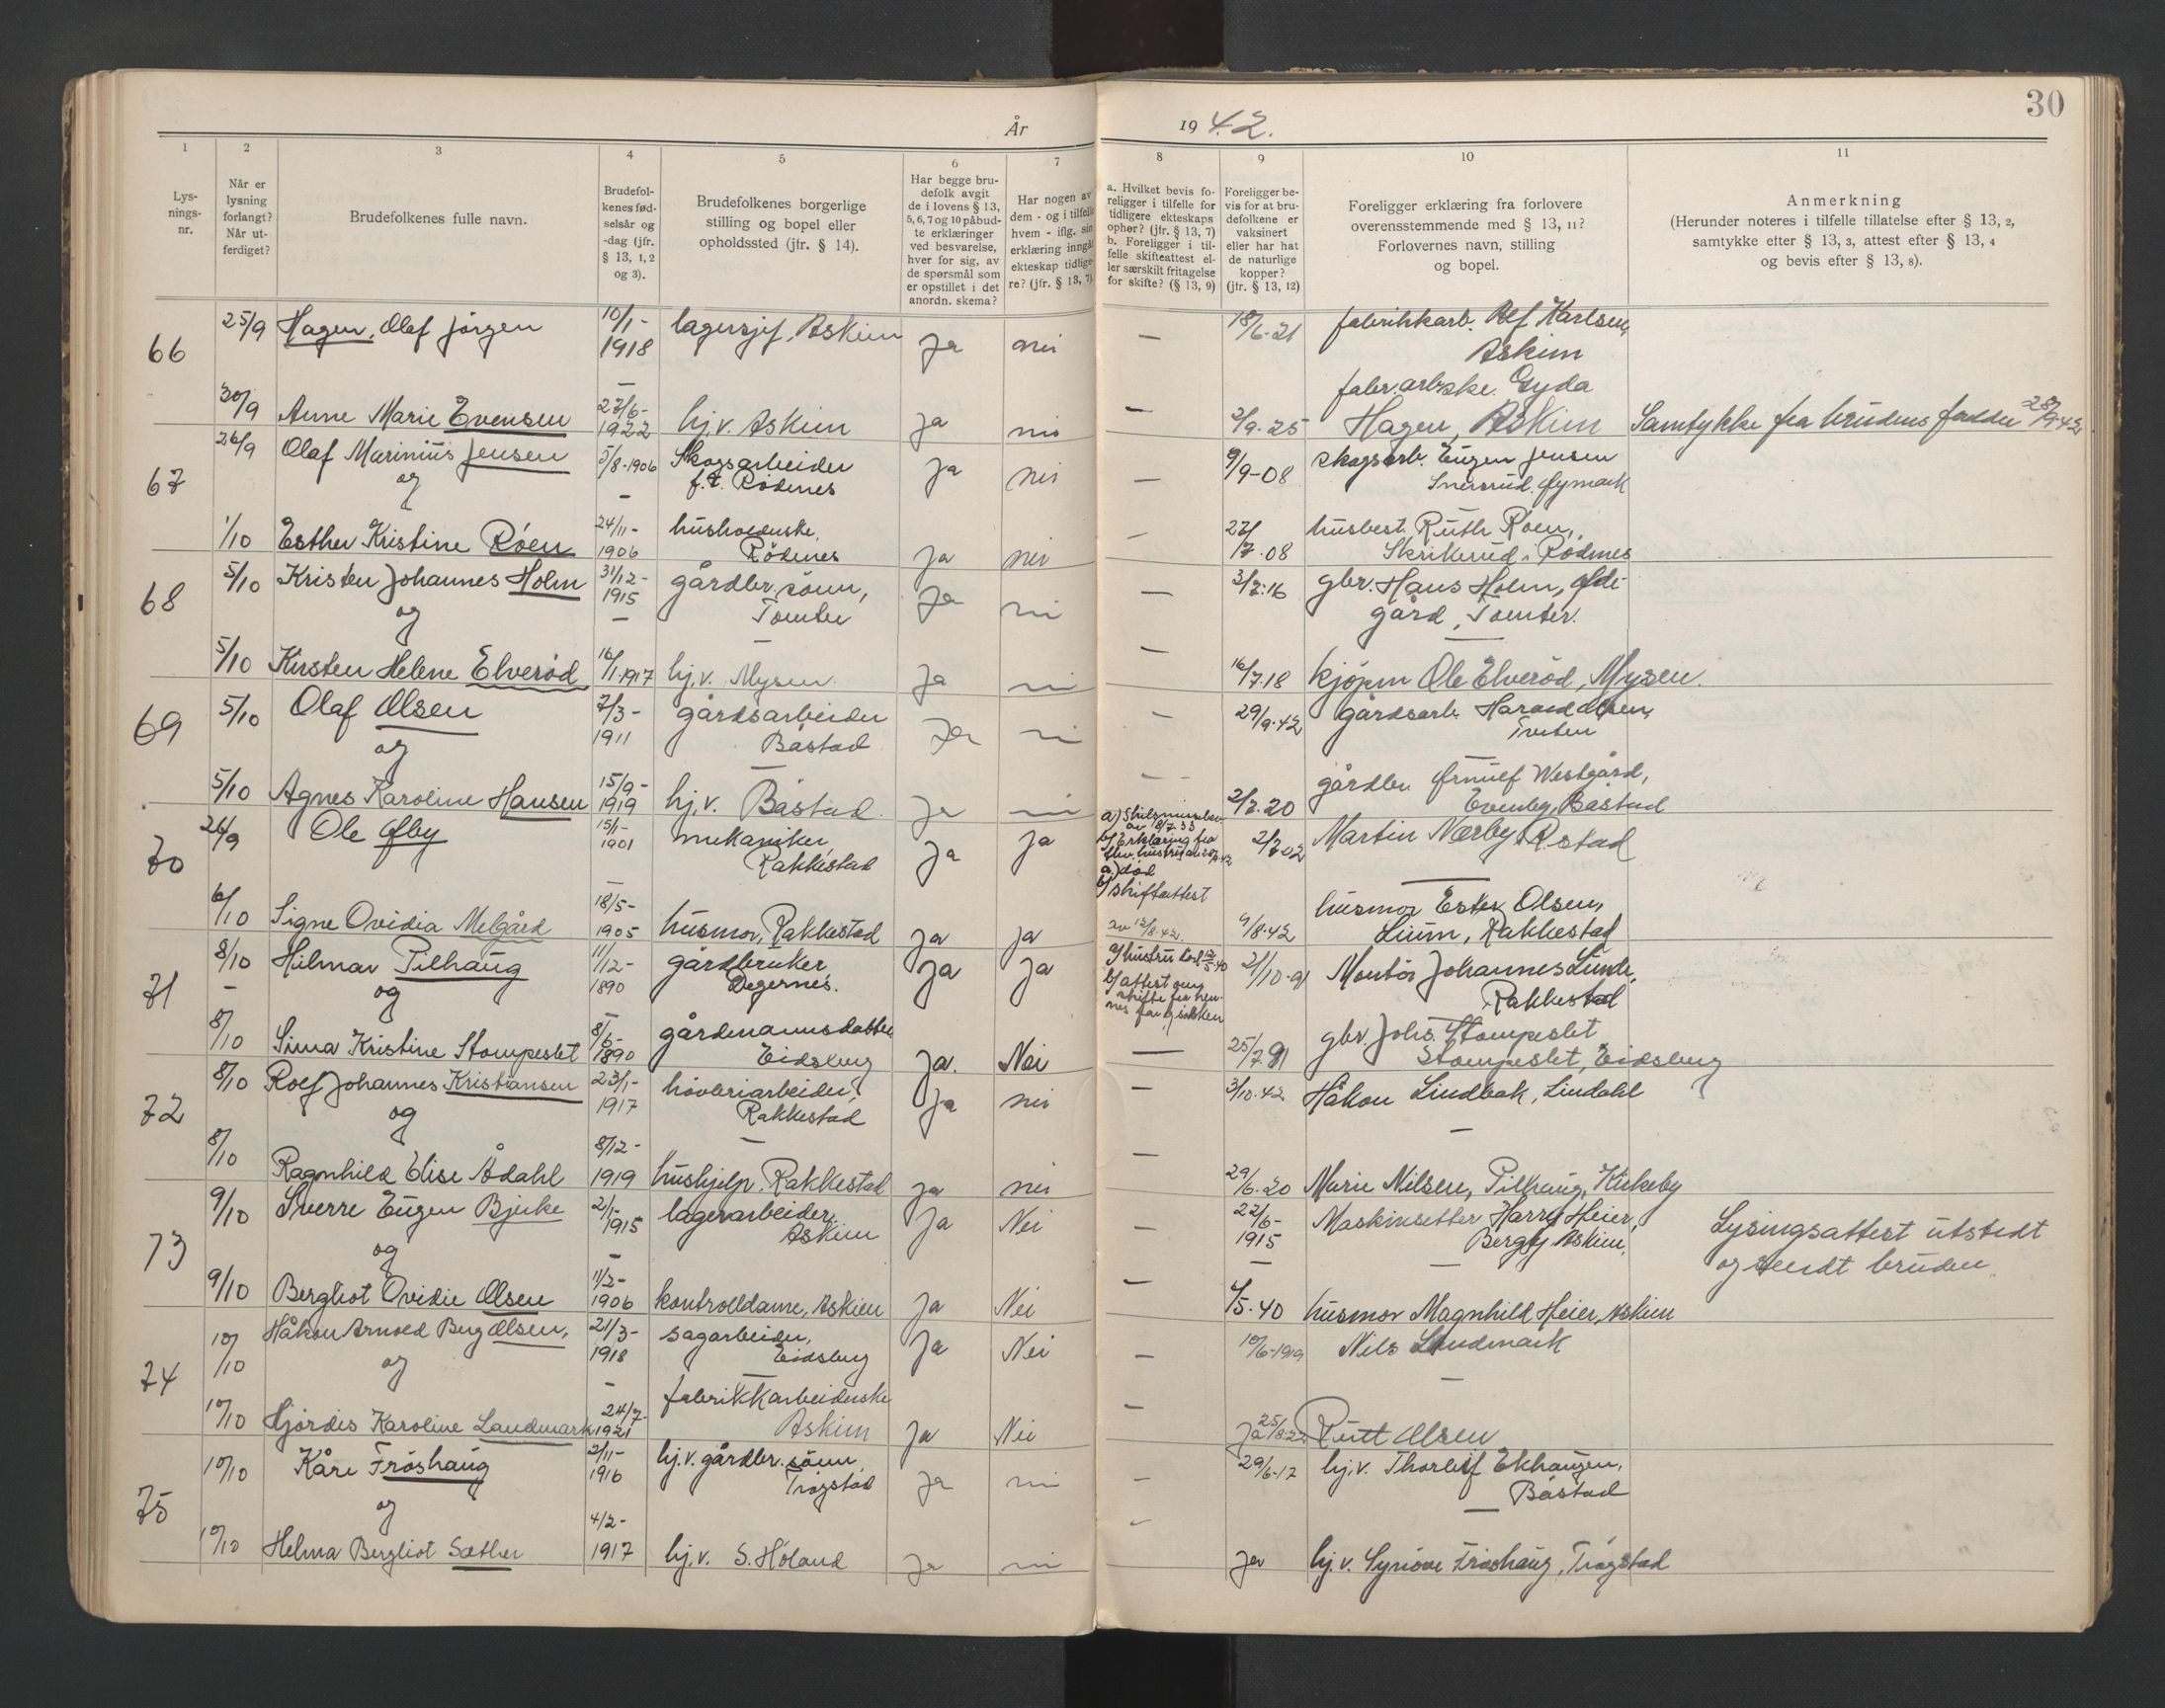 30
År 1942.
1
2
3
4
5
6
7
8
9
10
11
Lys-
nings-
nr.
Når er
lysning
forlangt?
Når ut-
ferdiget?
Brudefolkenes fulle navn.
Brudefol-
kenes fød-
selsår og
-dag (jfr.
§ 13, 1, 2
og 3).
Brudefolkenes borgerlige
stilling og bopel eller
opholdssted (jfr. § 14).
Har begge bru-
defolk avgit
de i lovens § 13,
5, 6, 7 og 10 påbud-
te erklæringer
ved besvarelse,
hver for sig, av
de spørsmål som
er opstillet i det
anordn. skema?
Har nogen av
dem - og i tilfelle
hvem - iflg. sin
erklæring inngåt
ekteskap tidlige-
re? (jfr. § 13, 7)
a. Hvilket bevis fo-
religger i tilfelle for
tidligere ekteskaps
ophør? (jfr. § 13, 7)
b. Foreligger i til-
felle skifteattest el-
ler særskilt fritagelse
for skifte? (§ 13, 9)
Foreligger be-
vis for at bru-
defolkene er
vaksinert
eller har hat
de naturlige
kopper?
(jfr. § 13, 12)
Foreligger erklæring fra forlovere
overensstemmende med § 13, 11?
Forlovernes navn, stilling
og bopel.
Anmerkning
(Herunder noteres i tilfelle tillatelse efter § 13, 2,
samtykke efter § 13, 3, attest efter § 13, 4
og bevis efter § 13, 8).
66 25/9 Hagen, Olaf Jörgen 10/1- 1918 lagersjef, Askim Ja nei — 18/6-21 fabrikkarb. Alf Karlsen,
Askim
fabr.arbske. Gyda
30/9 Anne Marie Evensen 27/6- 1922 hj.v. Askim Ja nei — 2/9-25 Hagen, Askim Samtykke fra brudens foreldre 28/9-42
67 26/9 Olaf Marinius Jensen 5/8-1906 Skogsarbeider Ja nei — 9/9-08 skogsarb. Eugen Jensen
og f.t. Rödenes Snesrud, Øymark
1/10 Esther Kristine Röen 24/11- 1906 husholderske, Rödenes Ja nei — 27/7-08 husbest. Ruth Roen,
Skrikerud, Rödenes
68 5/10 Kristen Johannes Holm 31/12- 1915 gårdbr. sönn, Ja nei — 3/7-16 gbr. Hans Holm,
og Tomter gård, Tomter.
5/10 Kirsten Helene Elveröd 16/1-1917 hj.v. Mysen Ja nei — 16/7-18 kjöpm Ole Elveröd, Mysen.
69 5/10 Olaf Olsen 7/3- 1911 gårdsarbeider Ja nei — 29/9-42 gårdsarb. Harald Olsen,
og Båstad
5/10 Agnes Karoline Hansen 15/9- 1919 hj.v. Båstad Ja nei — 2/7-20 gårdbr. Ørnulf Westgård,
Evenby, Båstad
70 26/9 Ole Øby 15/1- 1901 mekaniker, Rakkestad Ja Ja 2/7-02 Martin Nærby R.stad
a) Skilsmisse
b) Erklæring fra
a) död
b) skifteattest
av 12/8-42.
6/10 Signe Ovidia Melgård 18/5- 1905 husmor, Rakkestad Ja Ja 9/8-42 husmor Ester Olsen,
Lium, Rakkestad
71 8/10 Hilmar Pilhaug 11/12- 1890 gårdbruker, Ja Ja a) hustru död b) attest 21/10-91 Montör Johannes Lunde,
og Degernes. Rakkestad
8/10 Sina Kristine Stompeslet 8/6- 1890 gårdmannsdatter Eidsberg Ja. Nei — 25/7-91 gbr Johs. Stompeslet
Stompeslet, Eidsberg
72 8/10 Rolf Johannes Kristiansen 23/1- 1917 hövleriarbeider, Ja nei — 3/10-42 Håkon Lindbak, Lindahl
og Rakkestad
8/10 Ragnhild Elise Ådahl 8/12- 1919 hushjelp, Rakkestad Ja nei — 29/6-20 Marie Nilsen, Pilhaug, Kirkeby
73 9/10 Sverre Eugen Bjerke 2/1- 1915 lagerarbeider, Ja Nei — 22/6- 1915 Maskinsetter Harry Heier, Lysingsattest utstedt
og Askim Berg, Askim, og sendt bruden.
9/10 Bergliot Ovidie Olsen 11/2- 1906 kontrolldame, Askim Ja Nei — 6/5-40 husmor Magnhild Heier, Askim
74 10/10 Håkon Arnold Berg Olsen, 21/3- 1918 sagarbeider, Ja Nei — 10/6-1919 Nils Landmark
og Eidsberg
10/10 Hjördis Karoline Landmark 24/7- 1921 fabrikkarbeiderske Askim Ja Nei — Ja 25/8-22 Rutt Olsen
75 10/10 Kåre Fröshaug 2/11- 1916 hj.v. gårdbr. sönn, Ja nei — 29/6-17 hj.v. Thorleif Ekhaugen,
og Trögstad Båstad
10/10 Helma Bergliot Sæther 4/2- 1917 hj.v. S. Höland Ja nei Ja hj.v. Synöve Fröshaug, Trögstad